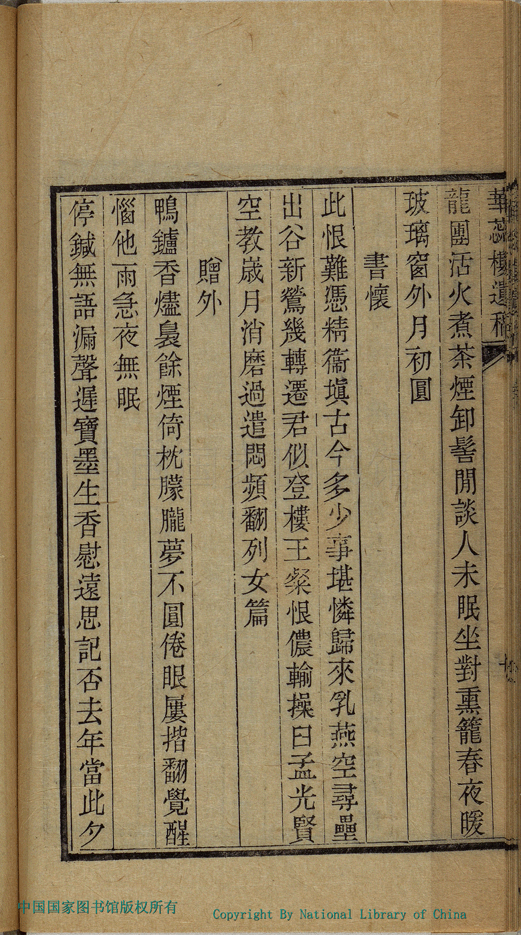 華蕊樓遺稿
龍團活火煮茶煙卸髻閒談人未眠坐對熏籠春夜暖
玻璃窗外月初圓
書懷
此恨難憑精衞塡古今多少事堪憐歸來乳燕空尋壘
出谷新鶯幾轉遷君似登樓王粲恨儂輸操臼孟光賢
空教歲月消磨過遣悶頻翻列女篇
贈外
鴨鑪香燼裊餘煙倚枕朦朧夢不圓倦眼屢揩翻覺醒
惱他雨急夜無眠
停鍼無語漏聲遲寶墨生香慰遠思記否去年當此夕
中国国家图书馆版权所有
Copyright By National Library of China